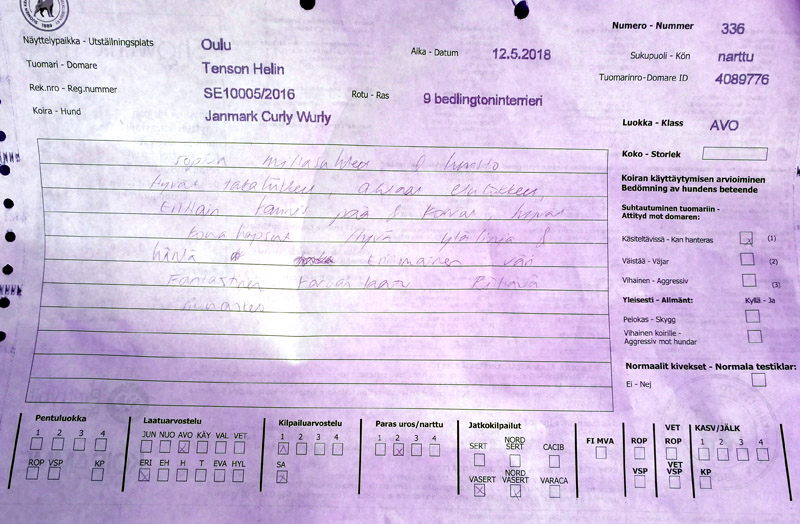 1889
Näyttelypaikka - Utställningsplats Oulu
Aika - Datum 12.5.2018
Numero - Nummer 336
Tuomari - Domare Tenson Helin
Sukupuoli - Kön narttu
Rek.nro - Reg.nummer SE10005/2016
Rotu - Ras 9 bedlingtoninterrieri
Tuomarinro-Domare ID 4089776
Koira - Hund Janmark Curly Wurly
Luokka - Klass AVO
Koko - Storlek
Koiran käyttäytymisen arvioiminen
Bedömning av hundens beteende
Suhtautuminen tuomariin -
Attityd mot domaren:
Käsiteltävissä - Kan hanteras (1)
Väistää - Väjar (2)
Vihainen - Aggressiv (3)
Yleisesti - Allmänt: Kyllä - Ja
Pelokas - Skygg
Vihainen koirille -
Aggressiv mot hundar
Normaalit kivekset - Normala testiklar:
Ei - Nej
sopiva mittasuhteet & luusto
Hyvät takakulmaukset
Erittäin kaunis pää & korvat, hyvät
Hyvä ylälinja &
häntä erinomainen väri
Fantastinen karvan laatu Riittävä
Pentuluokka
1 2 3 4
ROP VSP KP
Laatuarvostelu
JUN NUO AVO KÄY VAL VET
ERI EH H T EVA HYL
Kilpailuarvostelu
1 2 3 4
SA
Paras uros/narttu
1 2 3 4
Jatkokilpailut
SERT NORD SERT CACIB
VASERT NORD VASERT VARACA
FI MVA
ROP
VSP
VET
ROP
VET
VSP
KASV/JÄLK
1 2 3 4
KP